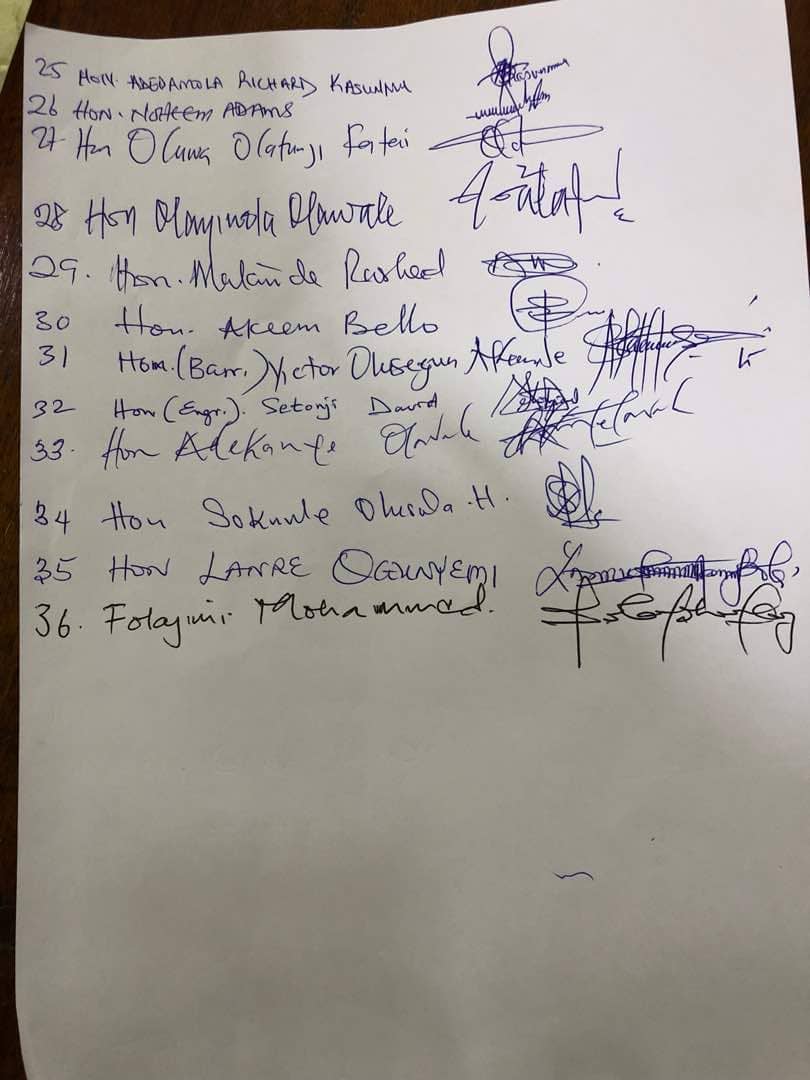 25 HON. ADEDAMOLA RICHARD KASUNMU Kasunmu
26 HON. NOHEEM ADAMS
27 Hon Oluwa Olatunji Fatai
28 Hon Olayinwola Olawale
29. Hon. Makinde Rasheed
30 Hon. Akeem Bello
31 Hon. (Barr.) Victor Olusegun Akande
32 Hon (Engr.). Setonji David
33. Hon Adekanye Olawale
34 Hon Sokunle Olusola .H.
35 HON LANRE OGUNYEMI
36. Folajimi Mohammed.